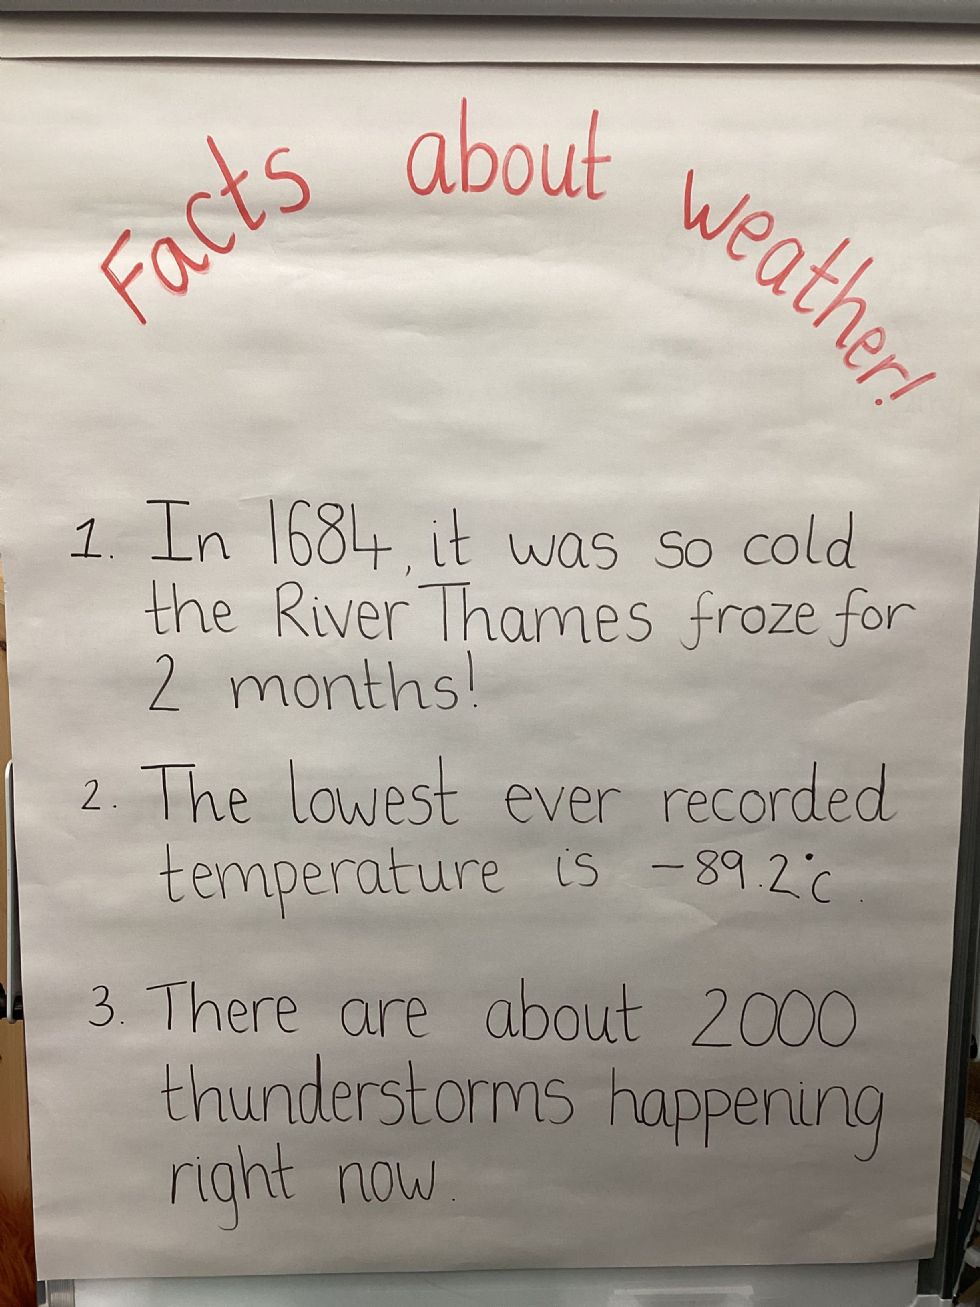 Facts about weather!
1. In 1684, it was so cold
the River Thames froze for
2 months!
2. The lowest ever recorded
temperature is -89.2°c.
3. There are about 2000
thunderstorms happening
right now.